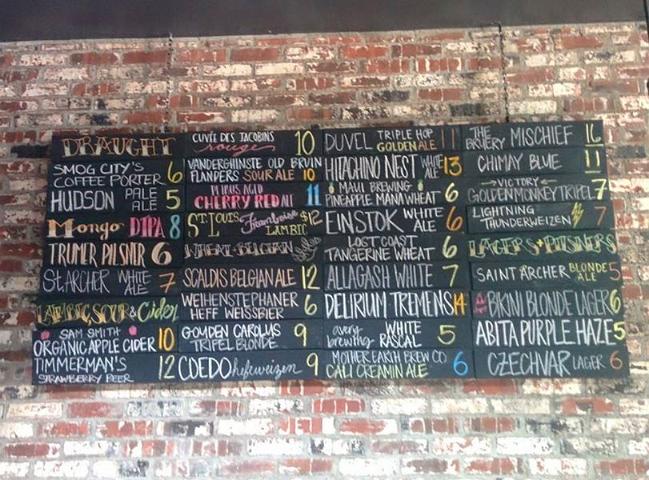 DRAUGHT
SMOG CITY'S
COFFEE PORTER 6
HUDSON ALE ALE 5
Mongo DIPA 8
TRUMER PILSNER 6
ST ARCHER WHITE ALE 7
LAMBIC, SOUR & Cider
SAM SMITH
ORGANIC APPLE CIDER 10
TIMMERMAN'S
STRAWBERRY BEER 12
CUVÉE DES JACOBINS
rouge 10
VANDERGHINSTE OLD BRUIN
FLANDERS SOUR ALE 10
AGED
CHERRY RED ALE 11
ST. LOUIS Framboise
LAMBIC $12
WHEAT + BELGIAN ales
SCALDIS BELGIAN ALE 12
WEIHENSTEPHANER
HEFF WEISSBIER 6
GOUDEN CAROLUS
TRIPEL BLONDE 9
COEDO hefeweizen 9
DUVEL TRIPLE HOP
GOLDEN ALE 11
HITACHINO NEST WHITE ALE 13
MAUI BREWING
PINEAPPLE MANA WHEAT 6
EINSTOK WHITE ALE 6
LOST COAST
TANGERINE WHEAT 6
ALLAGASH WHITE 7
DELIRIUM TREMENS 14
avery brewing WHITE
RASCAL 5
MOTHER EARTH BREW CO
CALI CREAMIN ALE 6
THE BRUERY MISCHIEF 16
CHIMAY BLUE 11
VICTORY
GOLDEN MONKEY TRIPEL 7
LIGHTNING
THUNDERWEIZEN 7
LAGERS + PILSNERS
SAINT ARCHER BLONDE ALE 5
BIKINI BLONDE LAGER 6
ABITA PURPLE HAZE 5
CZECHVAR LAGER 6